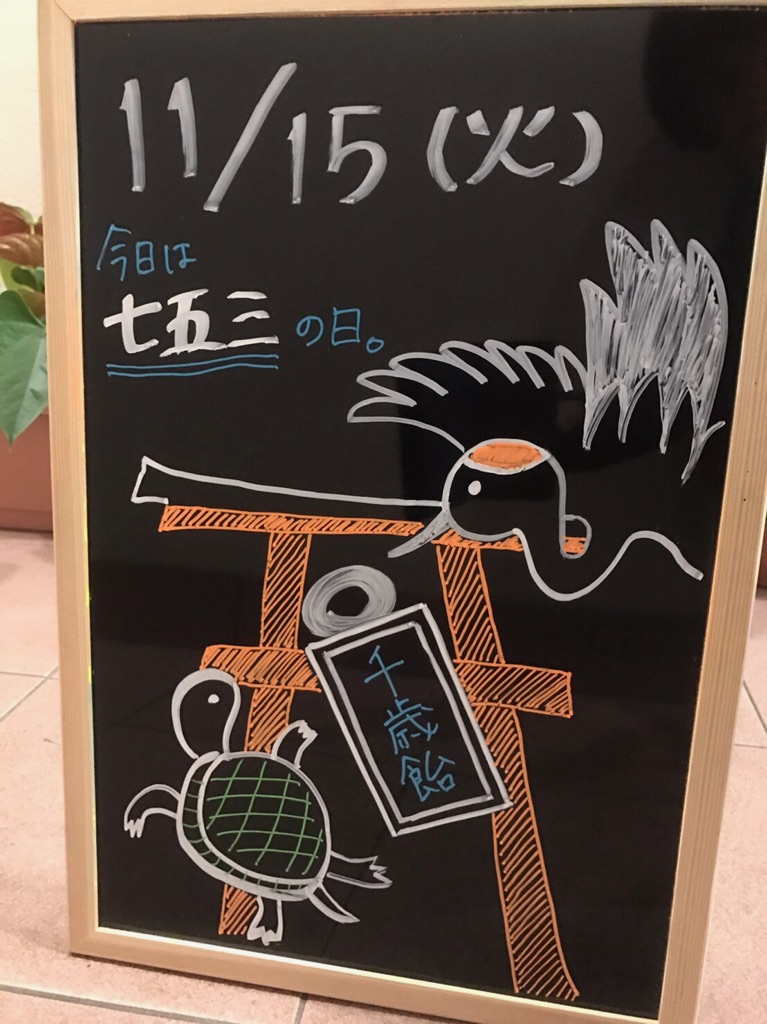 11/15(火)
今日は
七五三の日。
千歳飴